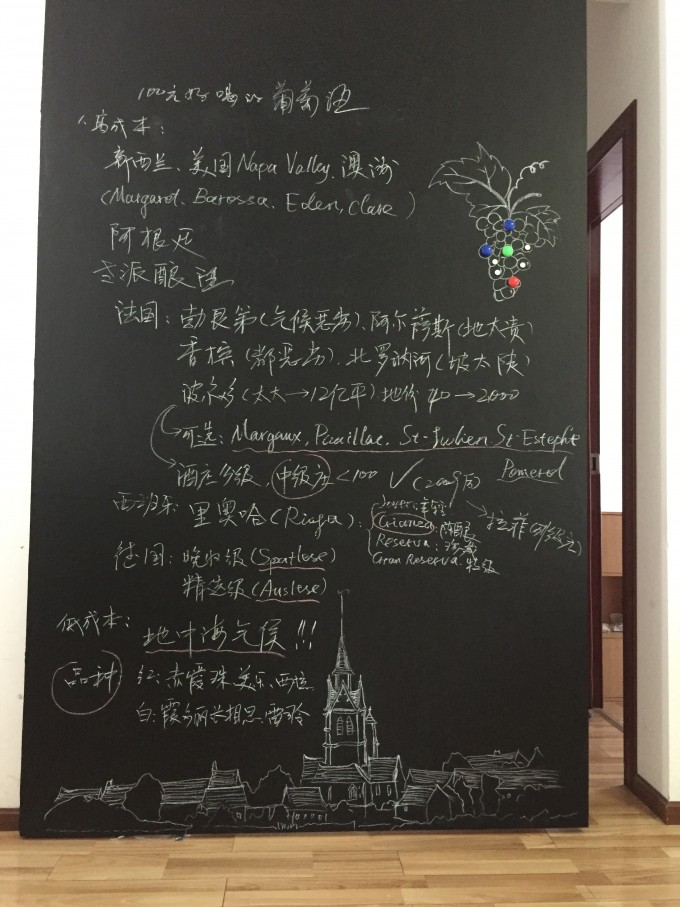 100元好喝的葡萄酒
1、高成本：
新西兰、美国Napa Valley、澳洲
(Margaret、Barossa、Eden, Clare)
阿根廷
老派酿酒
法国：勃艮第(气候恶劣)、阿尔萨斯(地太贵)
香槟(都恶劣)、北罗讷河(坡太陡)
波尔多(太大→12亿平)地价 40→2000
可选：Margaux, Pauillac, St-Julien, St-Estephe
Pomerol
酒庄分级、中级庄<100 ✓(2009后)
西班牙：里奥哈(Rioja)：
Joven：年轻
Crianza：陈酿
Reserva：珍藏
Gran Reserva 特级
→拉菲(列级庄)
德国：晚收级(Spatlese)
精选级(Auslese)
低成本：
地中海气候!!!
品种
红：赤霞珠、美乐、西拉
白：霞多丽、长相思、雷司令